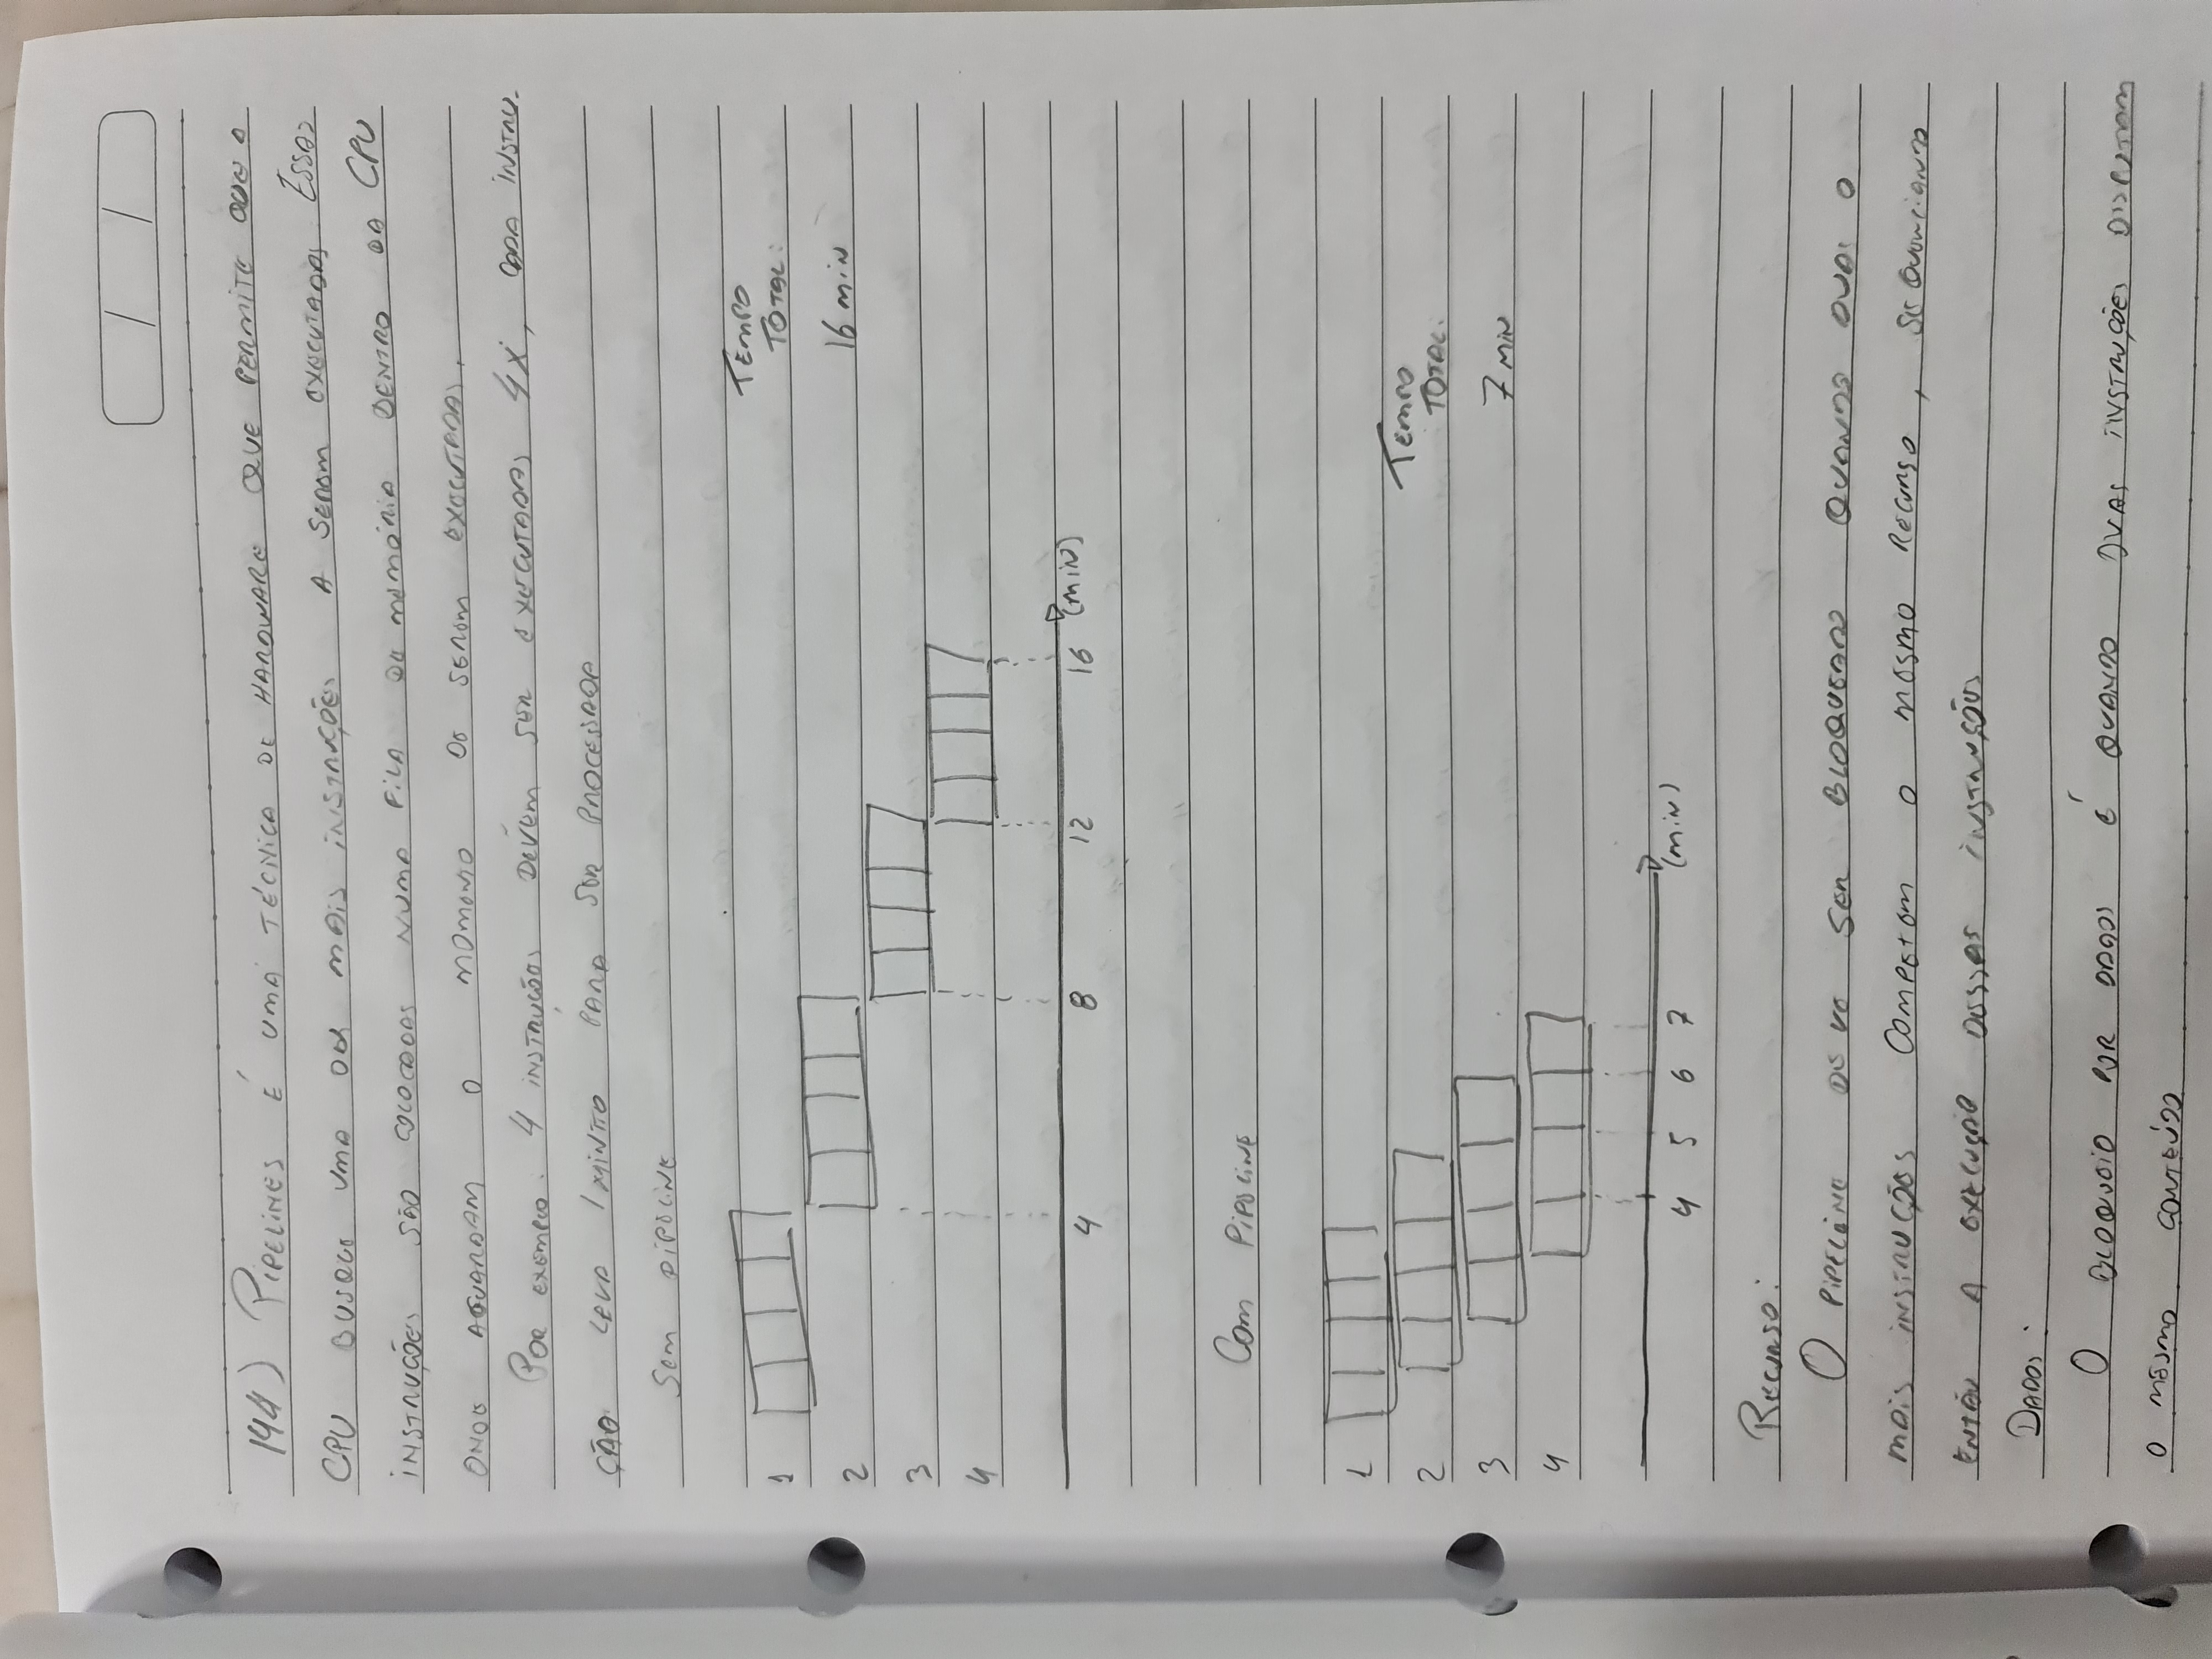 144) PIPELINES É UMA TÉCNICA DE HARDWARE QUE PERMITE QUE A
CPU BUSQUE UMA OU MAIS INSTRUÇÕES A SEREM EXECUTADAS ESSAS
INSTRUÇÕES SÃO COLOCADAS NUMA FILA DE MEMÓRIA DENTRO DA CPU
ONDE AGUARDAM O MOMENTO DE SEREM EXECUTADAS.
POR EXEMPLO. 4 INSTRUÇÕES DEVEM SER EXECUTADAS 4X, CADA INSTRU-
ÇÃO LEVA 1 PARA SER PROCESSADA
SEM PIPELINE
1
TEMPO
TOTAL:
2
16 MIN
3
4
4 8 12 16 (MIN)
COM PIPELINE
1
2
TEMPO
TOTAL:
3
7 MIN
4
4 5 6 7 (MIN)
RECURSO:
O PIPELINE DEVE SER BLOQUEADO QUANDO DUAS O
MAIS INSTRUÇÕES COMPETEM O MESMO RECURSO, SEQUENCIANDO
ENTÃO A EXECUÇÃO DESSAS INSTRUÇÕES
DADOS:
O BLOQUEIO POR DADOS É QUANDO DUAS INSTRUÇÕES DISPUTAM
O MESMO CONTEÚDO